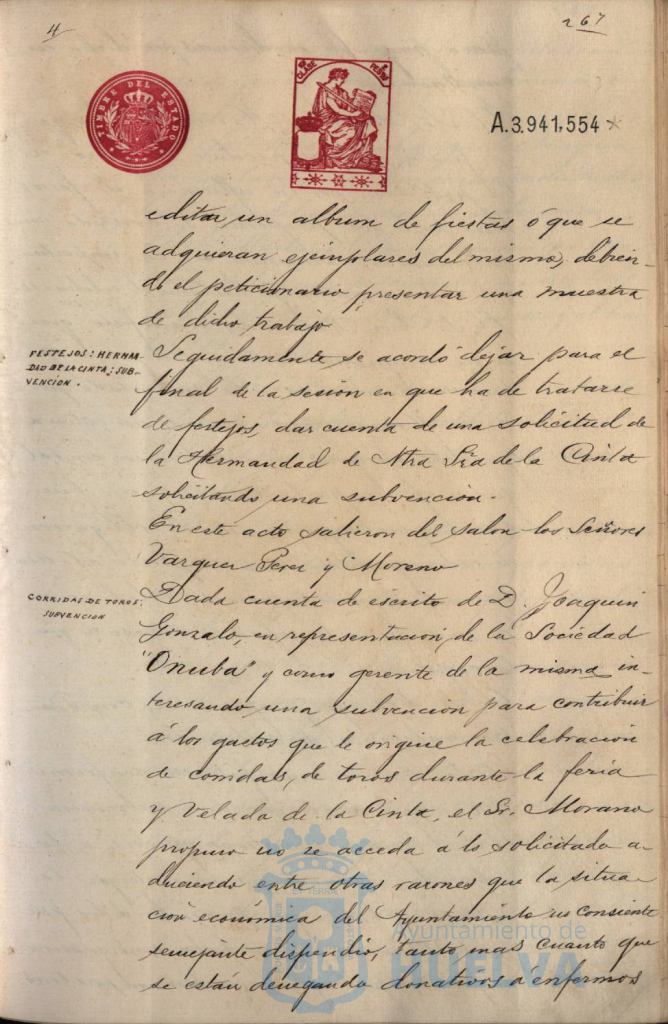 4
267
TIMBRE DEL ESTADO
CLASE
PESETAS
A.3.941,554
editar un album de fiestas ó que se
adquieran ejemplares del mismo, debien-
do el peticionario presentar una muestra
de dicho trabajo
FESTEJOS: HERMAN-
DAD DE LA CINTA; SUB-
VENCION.
Seguidamente se acordó dejar para el
final de la sesión en que ha de tratarse
de festejos, dar cuenta de una solicitud de
la Hermandad de Ntra Sra de la Cinta
solicitando una subvencion.
En este acto salieron del salon los Señores
Vazquez Perez y Moreno
CORRIDAS DE TOROS:
SUBVENCION
Dada cuenta de escrito de D. Joaquin
Gonzalo, en representacion, de la Sociedad
"Onuba" y como gerente de la misma in-
teresando una subvencion para contribuir
á los gastos que le origine la celebracion
de corridas, de toros durante la feria
y Velada de la Cinta, el Sr. Morano
propuso no se acceda á lo solicitado a-
duciendo entre otras razones que la situa-
ción económica del Ayuntamiento no consiente
semejante dispendio, tanto mas cuanto que
se están denegando donativos a enfermos
Ayuntamiento de
HUELVA